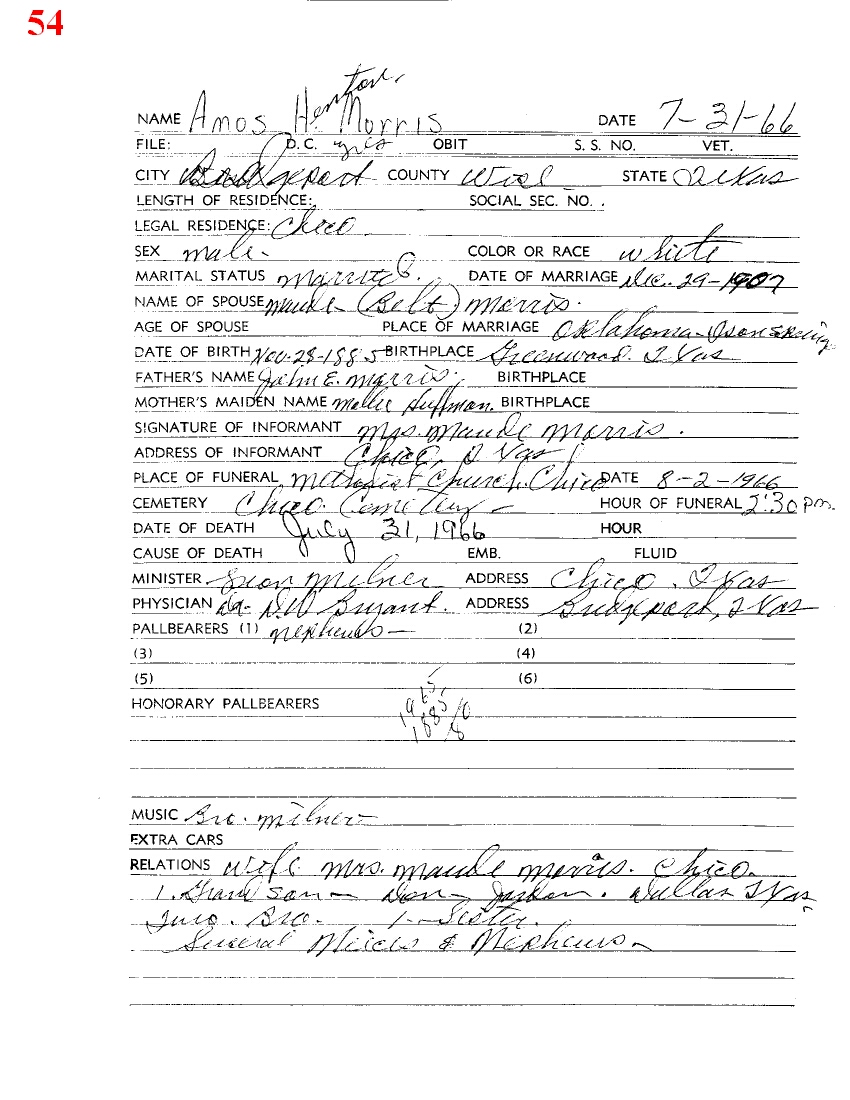 54
Henton.
NAME Amos H. Morris DATE 7-31-66
FILE: D.C. yes OBIT S. S. NO. VET.
CITY Bridgeport COUNTY Wise STATE Texas
LENGTH OF RESIDENCE: SOCIAL SEC. NO. .
LEGAL RESIDENCE: Chico
SEX male. COLOR OR RACE white
MARITAL STATUS married. DATE OF MARRIAGE Dec. 29-1907
NAME OF SPOUSE Maude (Belt) Morris.
AGE OF SPOUSE PLACE OF MARRIAGE Oklahoma
DATE OF BIRTH Nov-28-1885 BIRTHPLACE Greenwood. Texas
FATHER'S NAME John E. Morris. BIRTHPLACE
MOTHER'S MAIDEN NAME Mollie Huffman. BIRTHPLACE
SIGNATURE OF INFORMANT Mrs. Maude Morris.
ADDRESS OF INFORMANT Chico, Texas
PLACE OF FUNERAL Methodist Church. Chico DATE 8-2-1966
CEMETERY Chico Cemetery - HOUR OF FUNERAL 2:30 pm.
DATE OF DEATH July 31, 1966 HOUR
CAUSE OF DEATH EMB. FLUID
MINISTER Milner ADDRESS Chico, Texas
PHYSICIAN Dr. D.W Bryant. ADDRESS Bridgeport, Texas
PALLBEARERS (1) nephews - (2)
(3) (4)
(5) (6)
HONORARY PALLBEARERS
1965
1885
MUSIC Bro. Milner
EXTRA CARS
RELATIONS Wife Mrs. Maude Morris. Chico.
1. Grand Son - Don Dallas Texas
Two. Bro. 1-Sister.
Several Nieces & Nephews-